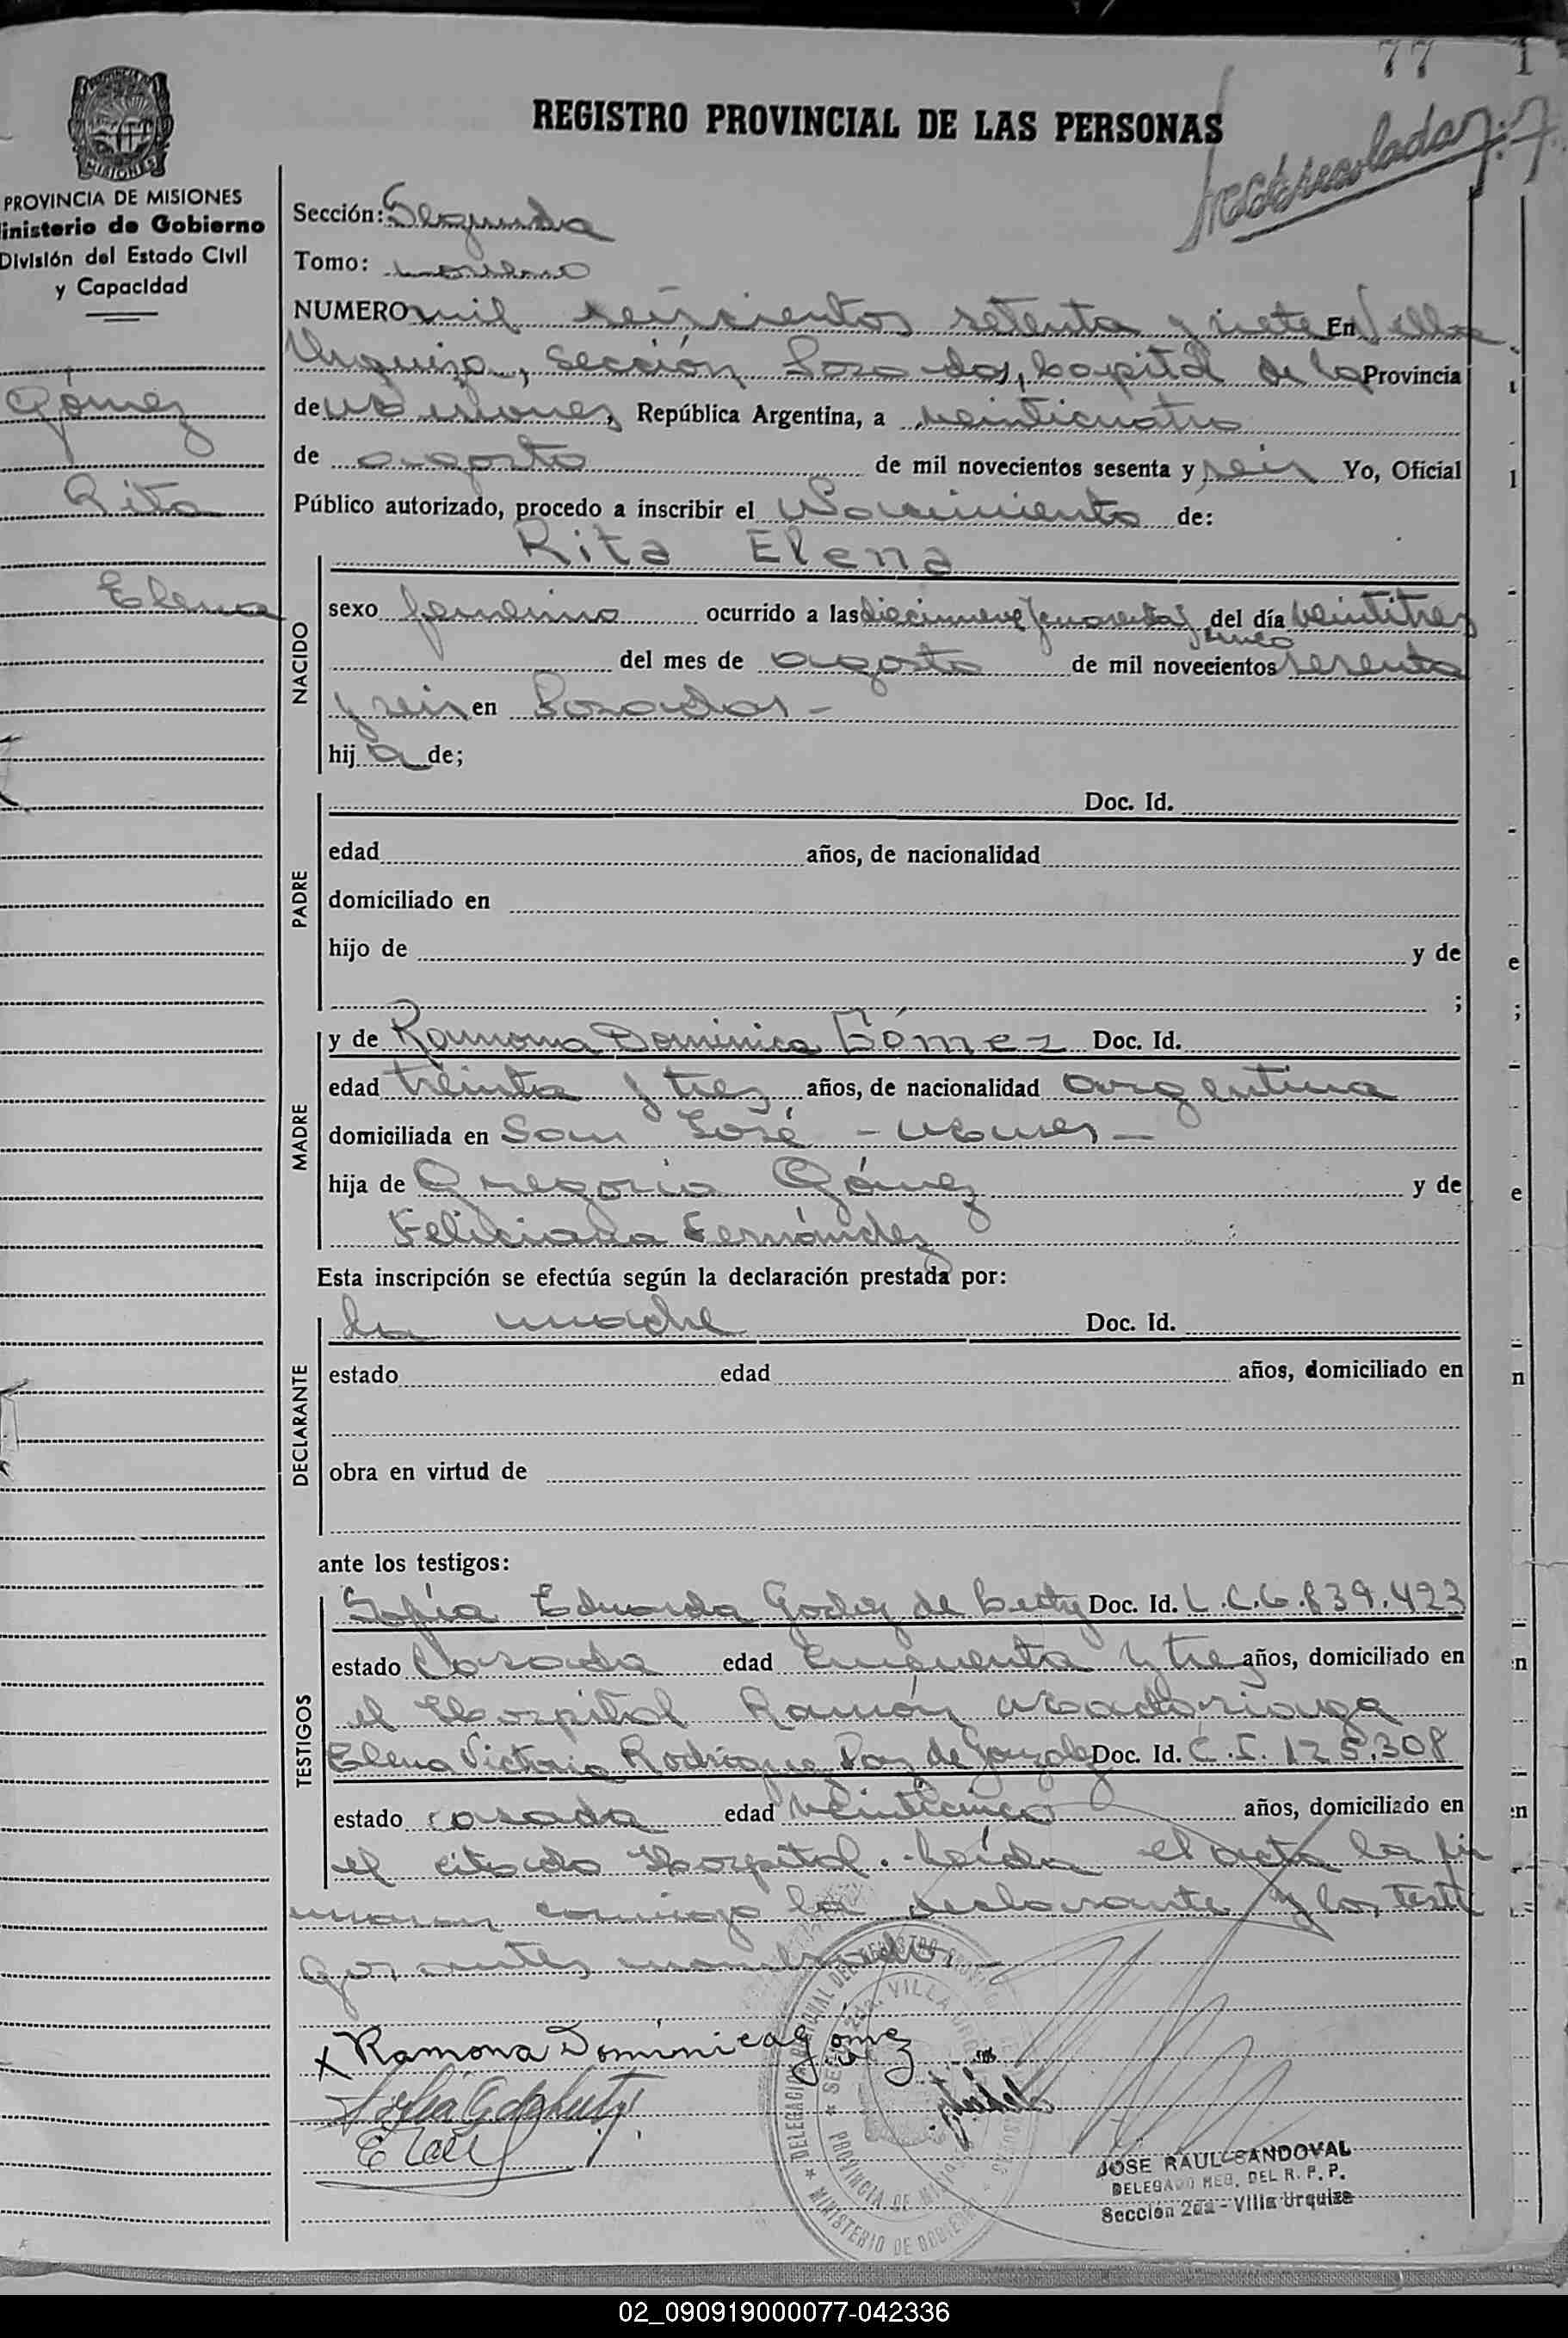 77 1
REGISTRO PROVINCIAL DE LAS PERSONAS
MISIONES
PROVINCIA DE MISIONES
inisterio de Gobierno
División del Estado Civil
y Capacidad
Gómez
Rita
Elena
Sección: Segunda
Tomo: noveno
NUMERO mil seiscientos setenta y siete En Villa
Urquiza, Sección Posadas, Capital de la Provincia
de Misiones, República Argentina, a veinticuatro
de agosto de mil novecientos sesenta y seis Yo, Oficial
Público autorizado, procedo a inscribir el Nacimiento de:
Rita Elena
NACIDO
sexo femenino ocurrido a las diecinueve y cuarenta y cinco del día veintitres
del mes de agosto de mil novecientos sesenta
y seis en Posadas -
hij a de;
PADRE
Doc. Id.
edad años, de nacionalidad
domiciliado en
hijo de y de
;
MADRE
y de Ramona Dominica Gómez Doc. Id.
edad treinta y tres años, de nacionalidad argentina
domiciliada en San José - Mnes -
hija de Gregorio Gómez y de
Feliciana Fernández
Esta inscripción se efectúa según la declaración prestada por:
DECLARANTE
la madre Doc. Id.
estado edad años, domiciliado en
obra en virtud de
ante los testigos:
TESTIGOS
Sofía Eduarda Godoy de Doc. Id. L.C. 6.839.423
estado Casada edad cincuenta y tres años, domiciliado en
el Hospital Ramón Madariaga
Elena Victoria Rodríguez Paz de Doc. Id. C.I. 125.308
estado casada edad veinticinco años, domiciliado en
el citado Hospital. Leída el acta la fir
maron conmigo la declarante y los testi
gos antes nombrados
x Ramona Dominica Gómez
JOSE RAUL SANDOVAL
DELEGADO REG. DEL R. P. P.
Sección 2da - Villa Urquiza
02_090919000077-042336